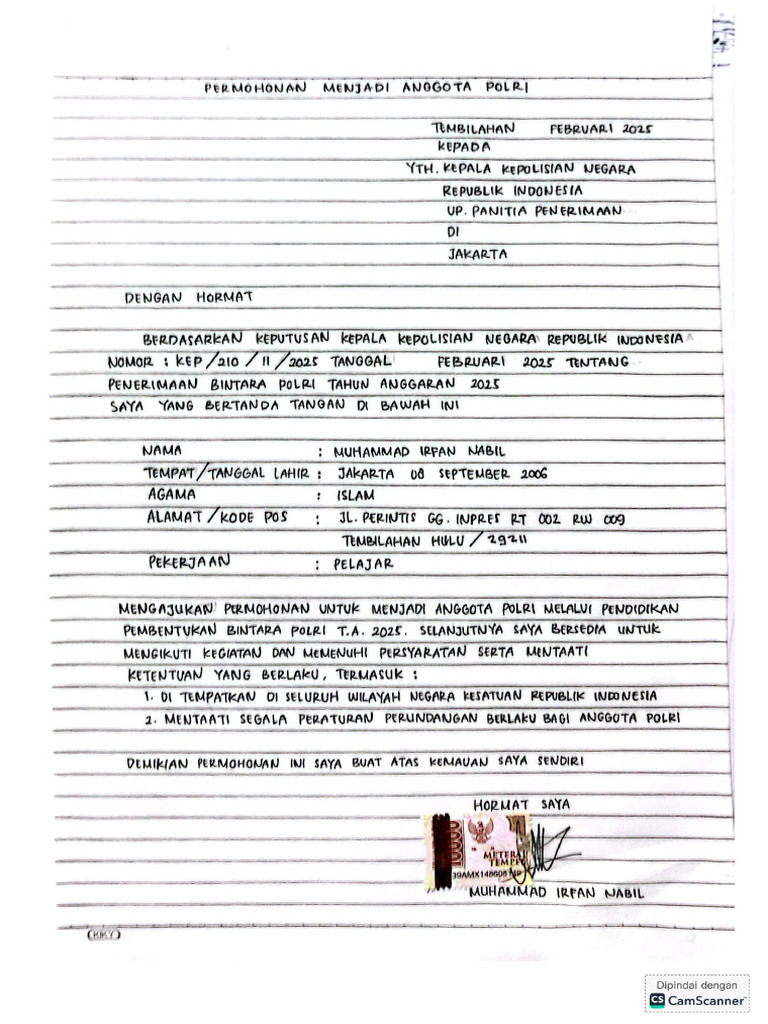 PERMOHONAN MENJADI ANGGOTA POLRI
TEMBILAHAN FEBRUARI 2025
KEPADA
YTH. KEPALA KEPOLISIAN NEGARA
REPUBLIK INDONESIA
UP. PANITIA PENERIMAAN
DI
JAKARTA
DENGAN HORMAT
BERDASARKAN KEPUTUSAN KEPALA KEPOLISIAN NEGARA REPUBLIK INDONESIA
NOMOR : KEP/210/11/2025 TANGGAL FEBRUARI 2025 TENTANG
PENERIMAAN BINTARA POLRI TAHUN ANGGARAN 2025
SAYA YANG BERTANDA TANGAN DI BAWAH INI
NAMA : MUHAMMAD IRFAN NABIL
TEMPAT/TANGGAL LAHIR : JAKARTA 08 SEPTEMBER 2006
AGAMA : ISLAM
ALAMAT/KODE POS : JL. PERINTIS GG. INPRES RT 002 RW 009
TEMBILAHAN HULU/29211
PEKERJAAN : PELAJAR
MENGAJUKAN PERMOHONAN UNTUK MENJADI ANGGOTA POLRI MELALUI PENDIDIKAN
PEMBENTUKAN BINTARA POLRI T.A. 2025. SELANJUTNYA SAYA BERSEDIA UNTUK
MENGIKUTI KEGIATAN DAN MEMENUHI PERSYARATAN SERTA MENTAATI
KETENTUAN YANG BERLAKU, TERMASUK :
1. DI TEMPATKAN DI SELURUH WILAYAH NEGARA KESATUAN REPUBLIK INDONESIA
2. MENTAATI SEGALA PERATURAN PERUNDANGAN BERLAKU BAGI ANGGOTA POLRI
DEMIKIAN PERMOHONAN INI SAYA BUAT ATAS KEMAUAN SAYA SENDIRI
HORMAT SAYA
10000
METERAI
TEMPEL
MUHAMMAD IRFAN NABIL
KIKY
Dipindai dengan
CS CamScanner